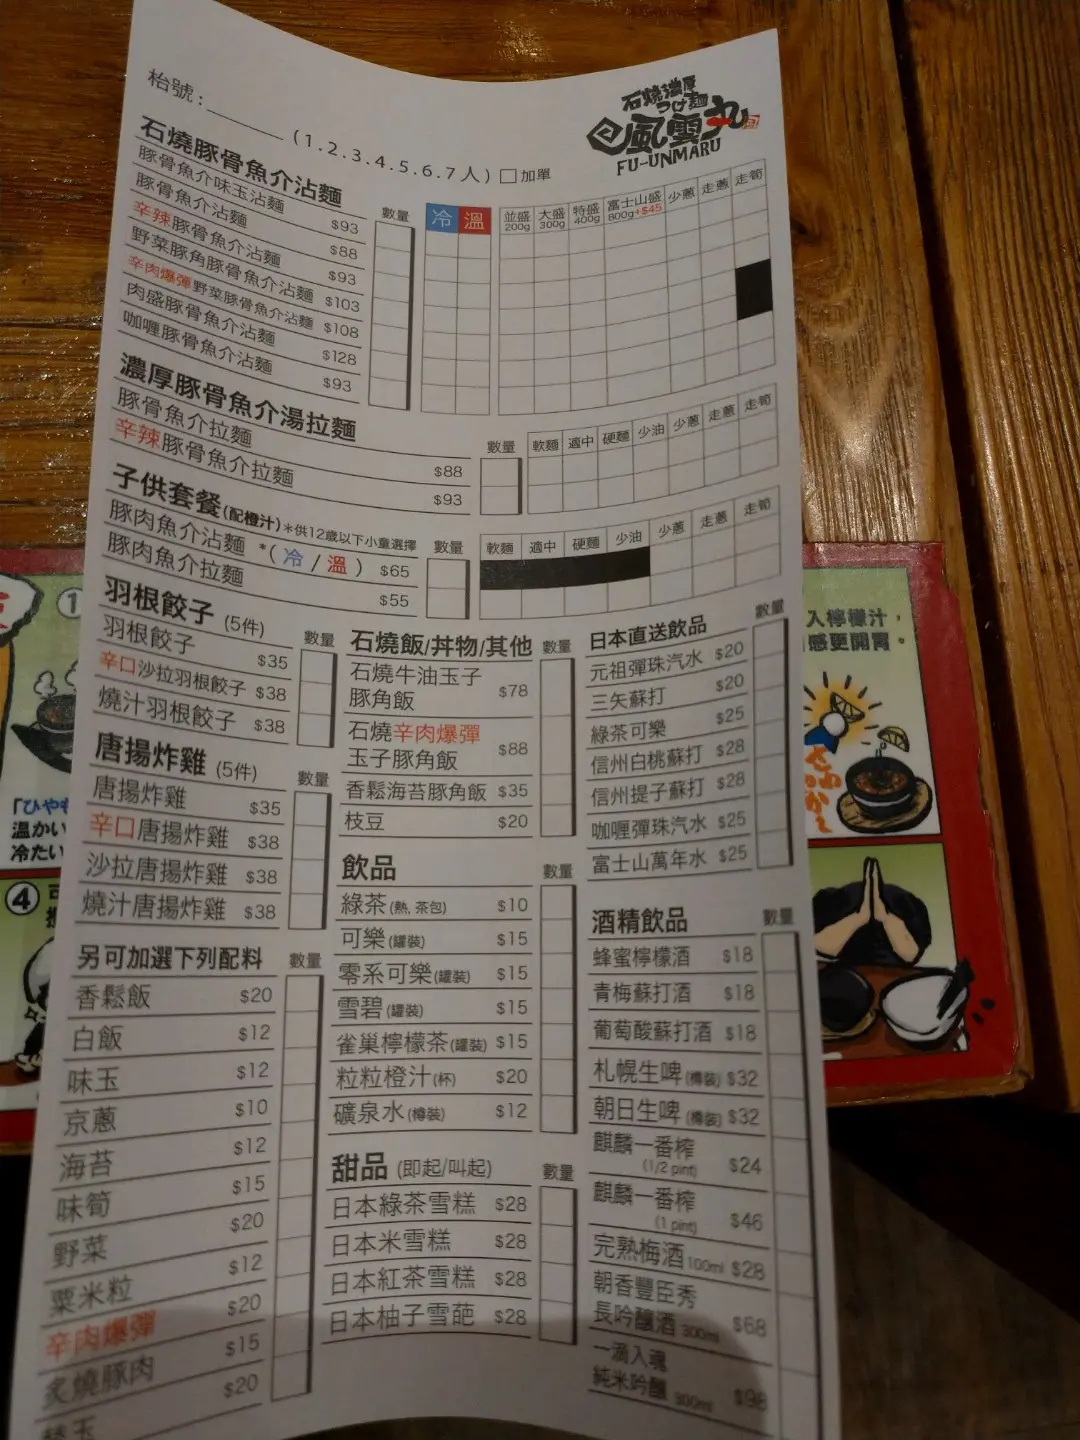 枱號：
(1.2.3.4.5.6.7人) 加單
石燒濃厚
つけ麺
風雲丸
FU-UNMARU
石燒豚骨魚介沾麵
數量 冷 溫 並盛 200g 大盛 300g 特盛 400g 富士山盛 800g+$45 少蔥 走蔥 走筍
豚骨魚介味玉沾麵 $93
豚骨魚介沾麵 $88
辛辣豚骨魚介沾麵 $93
野菜豚角豚骨魚介沾麵 $103
辛肉爆彈野菜豚骨魚介沾麵 $108
肉盛豚骨魚介沾麵 $128
咖喱豚骨魚介沾麵 $93
濃厚豚骨魚介湯拉麵
數量 軟麵 適中 硬麵 少油 少蔥 走蔥 走筍
豚骨魚介拉麵 $88
辛辣豚骨魚介拉麵 $93
子供套餐(配橙汁)*供12歲以下小童選擇
數量 軟麵 適中 硬麵 少油 少蔥 走蔥 走筍
豚肉魚介沾麵 *(冷/溫) $65
豚肉魚介拉麵 $55
羽根餃子 (5件) 數量
羽根餃子 $35
辛口沙拉羽根餃子 $38
燒汁羽根餃子 $38
唐揚炸雞 (5件) 數量
唐揚炸雞 $35
辛口唐揚炸雞 $38
沙拉唐揚炸雞 $38
燒汁唐揚炸雞 $38
另可加選下列配料 數量
香鬆飯 $20
白飯 $12
味玉 $12
京蔥 $10
海苔 $12
味筍 $15
野菜 $20
粟米粒 $12
辛肉爆彈 $20
炙燒豚肉 $15
替玉 $20
石燒飯/丼物/其他 數量
石燒牛油玉子
豚角飯 $78
石燒辛肉爆彈
玉子豚角飯 $88
香鬆海苔豚角飯 $35
枝豆 $20
飲品 數量
綠茶(熱,茶包) $10
可樂(罐裝) $15
零系可樂(罐裝) $15
雪碧(罐裝) $15
雀巢檸檬茶(罐裝) $15
粒粒橙汁(杯) $20
礦泉水(樽裝) $12
甜品 (即起/叫起) 數量
日本綠茶雪糕 $28
日本米雪糕 $28
日本紅茶雪糕 $28
日本柚子雪葩 $28
日本直送飲品 數量
元祖彈珠汽水 $20
三矢蘇打 $20
綠茶可樂 $25
信州白桃蘇打 $28
信州提子蘇打 $28
咖喱彈珠汽水 $25
富士山萬年水 $25
酒精飲品 數量
蜂蜜檸檬酒 $18
青梅蘇打酒 $18
葡萄酸蘇打酒 $18
札幌生啤(樽裝) $32
朝日生啤(樽裝) $32
麒麟一番榨
(1/2 pint) $24
麒麟一番榨
(1 pint) $46
完熟梅酒100ml $28
朝香豐臣秀
長吟釀酒 300ml $68
一滴入魂
純米吟釀 300ml $98
①
「ひやも
温かい
冷たい
④
入檸檬汁，
感更開胃。